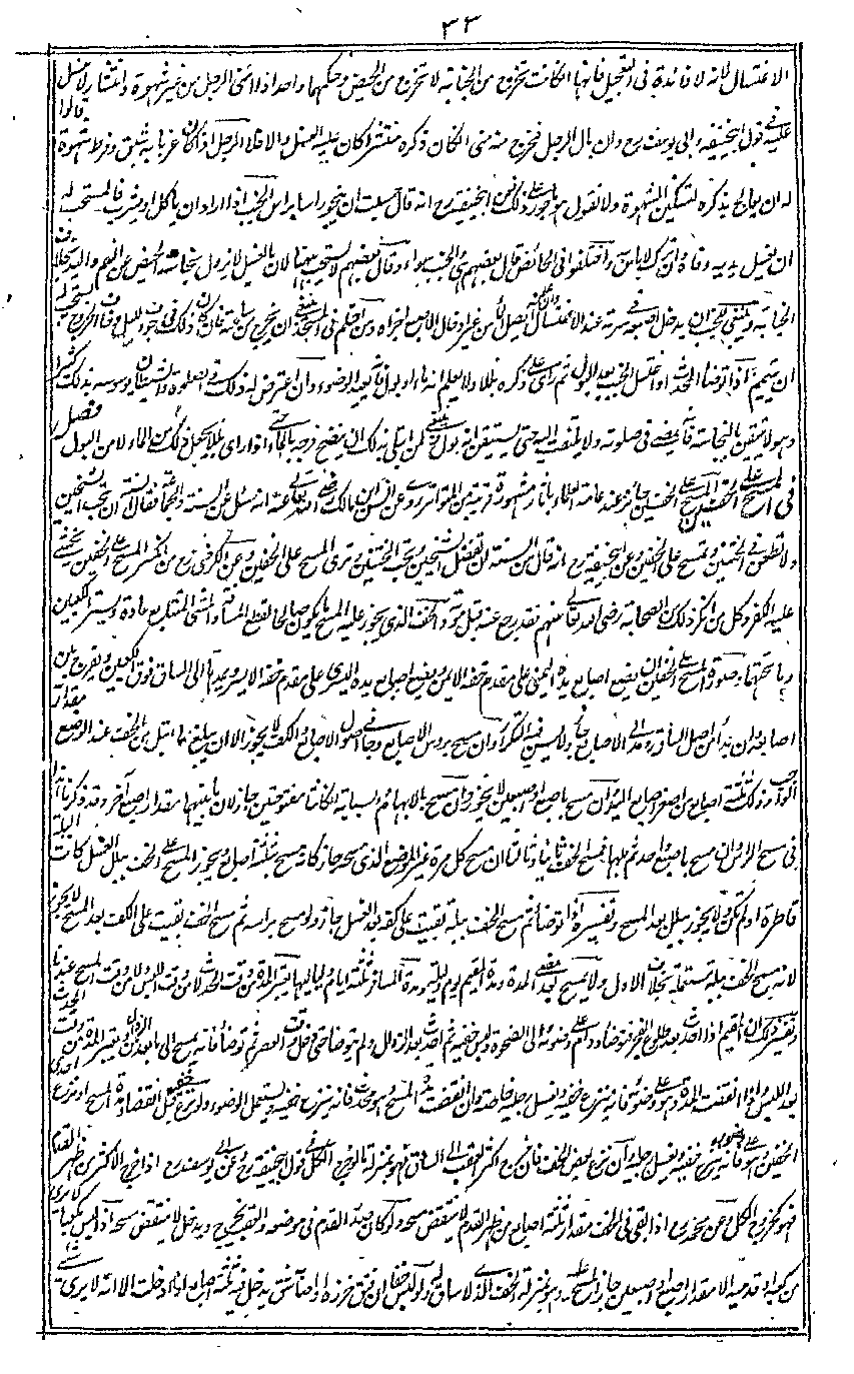 ٣٣
الاغتسال لانه لا فائدة فى التعجيل فانها ان كانت تخرج من الجنابة لا تخرج من الحيض وحكمهما واحد اذا امنى الرجل من غير شهوة وانتشار لا غسل
عليه فى قول ابى حنيفة وابى يوسف رح وان بال الرجل فخرج منه منى ان كان ذكره منتشرا كان عليه الغسل والا فلا الرجل اذا كان عزبا به شبق وفرط شهوة قالوا
له ان يعالج بذكره لتسكين الشهوة ولا نقول هو ماجور على ذلك ابى حنيفة رح انه قال حسبه ان ينجو راسا براس الجنب اذا اراد ان ياكل او يشرب فالمستحب له
ان يغسل يديه وفاه وان ترك لا باس واختلفوا فى الحائض قال بعضهم هى والجنب سواء وقال بعضهم لا يستحب ههنا لان بالغسل لا يزول نجاسة الحيض عن الفم واليد بخلاف
الجنابة وينبغى للجنب ان يدخل اصبعه فى سرته عند الاغتسال وان علم انه يصل الماء من غير ادخال الاصبع اجزاه ومن احتلم فى المسجد ينبغى ان يخرج من ساعته فان كان ذلك فى جوف الليل وخاف الخروج يستحب له
ان يتيمم اذا توضأ المحدث او اغتسل الجنب بعد البول ثم راى على ذكره بللا ولا يعلم انه ماء او بول فانه يعيد الوضوء وان اعترض له ذلك فى الصلوة والشيطان يوسوسه بذلك كثيرا
وهو لا يتيقن بالنجاسة فانه يمضى فى صلوته ولا يلتفت اليه حتى يستيقن انه بول وينبغى لمن ابتلى بذلك ان ينضح فرجه بالماء حتى اذا راى بللا يحيل ذلك من الماء لا من البول فصل
فى المسح على الخفين المسح على الخفين جائز عند عامة العلماء باثار مشهورة قريبة من المتواتر روى عن انس ابن مالك رضى الله تعالى عنه انه سئل عن السنة والجماعة فقال السنة ان تحب الشيخين
ولا تطعن فى الختنين وتمسح على الخفين وعن ابى حنيفة رح انه قال من السنة ان تفضل الشيخين وتحب الختنين وترى المسح على الخفين وعن الكرخى رح من انكر المسح على الخفين يخشى
عليه الكفر وكل من انكر ذلك من الصحابة رضى الله تعالى عنهم فقد رجع عنه قبل موته والخف الذى يجوز عليه المسح ما يكون صالحا لقطع المسافة والمشى المتتابع عادة ويستر الكعبين
وما تحتهما وصورة المسح على الخفين ان يضع اصابع يده اليمنى على مقدم خفه الايمن ويضع اصابع يده اليسرى على مقدم خفه الايسر ويمدهما الى الساق فوق الكعبين ويفرج بين
اصابعه وان بدا من اصل الساق ومد الى الاصابع جاز وليس فيه التكرار وان مسح برؤس الاصابع وجافى اصول الاصابع والكف لا يجوز الا ان يبلغ ما ابتل من الخف عند الوضع مقدار
الواجب وذلك ثلثة اصابع من اصغر اصابع اليد وان مسح باصبع او اصبعين لا يجوز وان مسح بالابهام والسبابة ان كانتا مفتوحتين جاز لان ما بينهما مقدار اصبع آخر وقد ذكرنا هذا
فى مسح الراس وان مسح باصبع واحد ثم بلها فمسح الخف ثانيا وثالثا ان مسح كل مرة غير الموضع الذى مسحه جاز كانه مسح بثلثة اصابع ويجوز المسح على الخف ببلل الغسل كانت البلة
قاطرة او لم تكن ولا يجوز ببلل بعد المسح وتفسيره اذا توضأ ثم مسح الخف ببلة بقيت على كفه بعد الغسل جاز ولو مسح براسه ثم مسح الخف ببلة بقيت على الكف بعد المسح لا يجوز
لانه مسح الخف ببلة مستعملة بخلاف الاول ولا يمسح بعد مضى المدة ومدة المقيم يوم وليلة ومدة المسافر ثلثة ايام ولياليها يعتبر المدة من وقت الحدث لا من وقت اللبس ولا من وقت المسح عندنا
وتفسير ذلك ان المقيم اذا احدث بعد طلوع الفجر فتوضأ ودام على وضوئه الى الضحوة ولبس خفيه ثم احدث بعد الزوال ولم يتوضأ حتى دخل وقت العصر ثم توضأ فانه يمسح الى ما بعد الزوال ويعتبر المدة من وقت الحدث
بعد اللبس واذا انقضت المدة وهو على وضوئه فانه ينزع خفيه ويغسل رجليه خاصة وان انقضت مدة المسح وهو محدث فانه ينزع خفيه ويستقبل الوضوء ولو نزع خفيه قبل انقضاء مدة المسح او نزع احدى
الخفين وهو على وضوئه فانه ينزع خفيه ويغسل رجليه وان نزع بعض الخف فان خرج اكثر العقب الى الساق فهو بمنزلة خروج الكل فى قول ابى حنيفة رح وعن ابى يوسف رح اذا خرج الاكثر من ظهر القدم
فهو كخروج الكل وعن محمد رح اذا بقى فى الخف مقدار ثلثة اصابع من ظهر القدم لا ينتقض مسحه ولو كان صدر القدم فى موضعه والعقب يخرج ويدخل لا ينتقض مسحه اذا لبس مكعبا لا يرى
من كعبه او قدميه الا مقدار اصبع او اصبعين جاز المسح عليه وهو بمنزلة الخف الذى لا ساق له ولو لبس خفا ان فتق خرزه او اصابه شق يدخل فيه ثلثة اصابع اذا دخلت الا انه لا يرى شئ